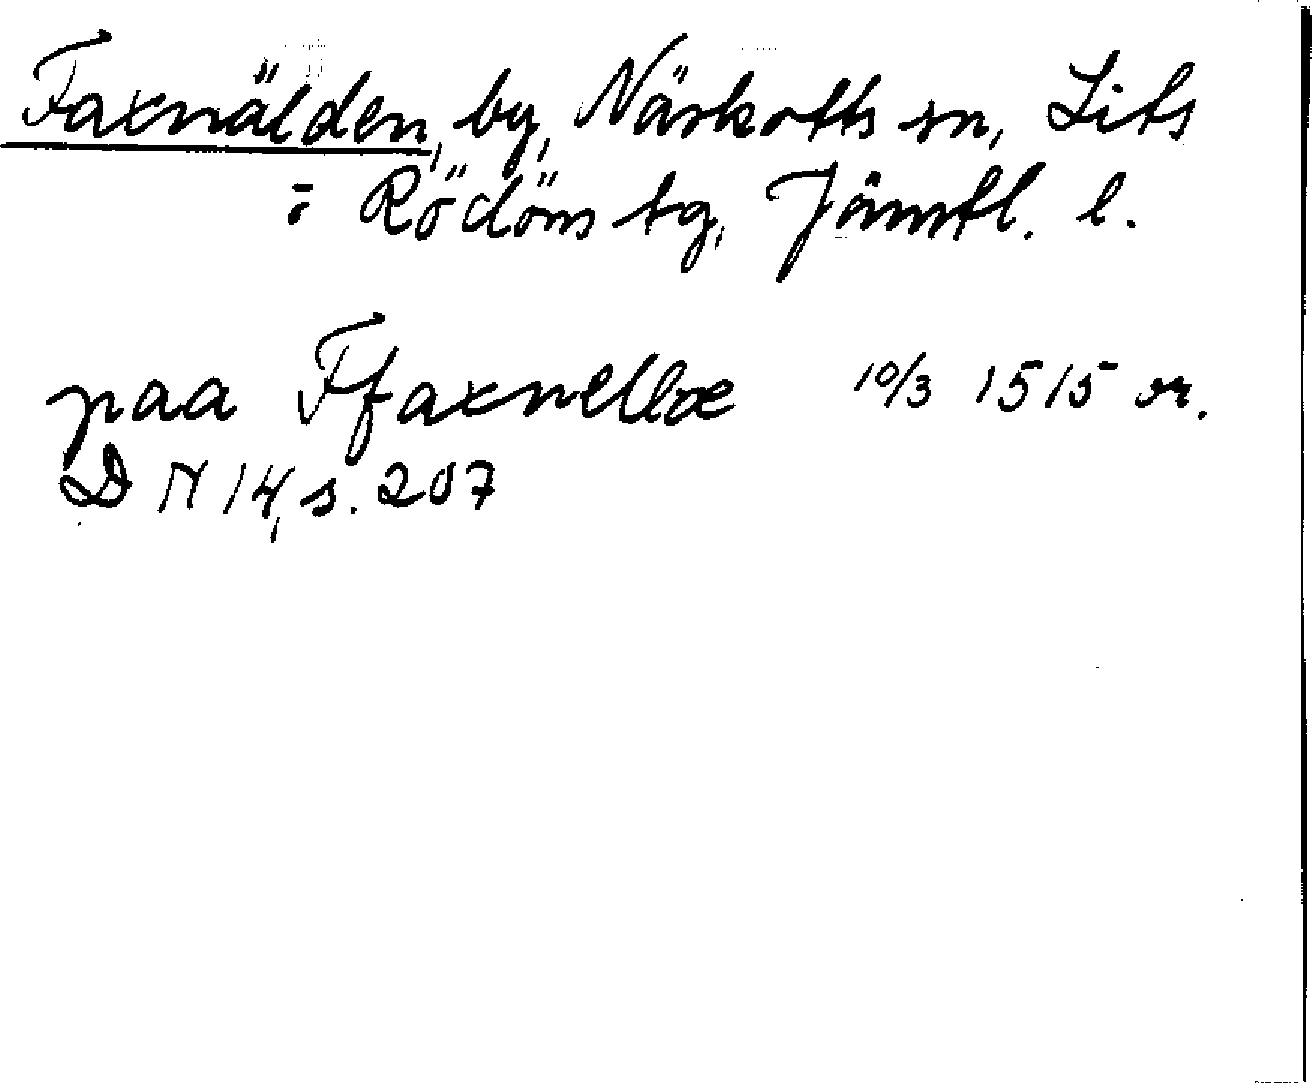 Faxnälden, by, Näskotts sn, Lits
o. Rödöns tg, Jämtl. l.
paa Ffaxnellæ 10/3 1515 or.
DN 14, s. 207